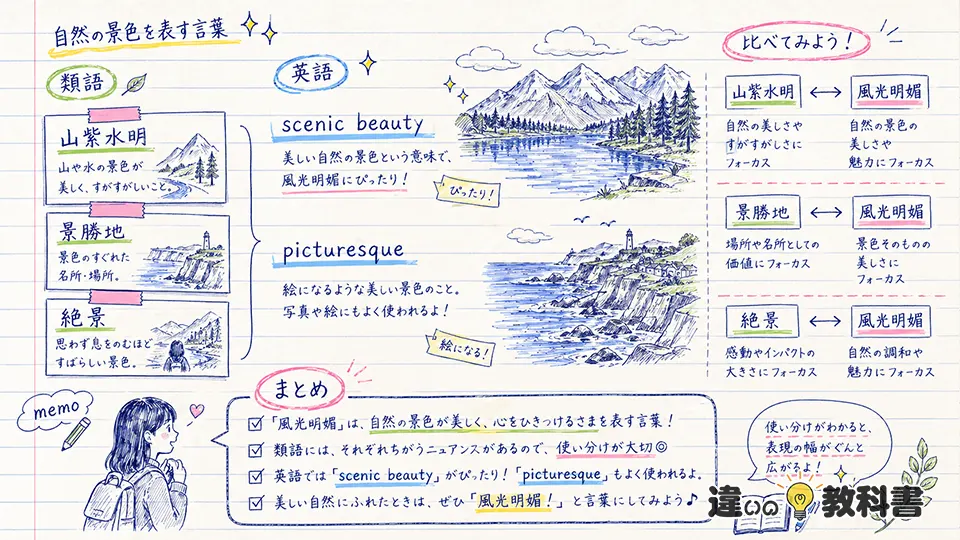 自然の景色を表す言葉
類語
山紫水明
山や水の景色が
美しく、すがすがしいこと。
景勝地
景色のすぐれた
名所・場所。
絶景
思わず息をのむほど
すばらしい景色。
英語
scenic beauty
美しい自然の景色という意味で、
風光明媚にぴったり!
ぴったり!
picturesque
絵になるような美しい景色のこと。
写真や絵にもよく使われるよ!
絵になる!
比べてみよう!
山紫水明 ↔ 風光明媚
自然の美しさや
すがすがしさに
フォーカス
自然の景色の
美しさや
魅力にフォーカス
景勝地 ↔ 風光明媚
場所や名所としての
価値にフォーカス
景色そのものの
美しさに
フォーカス
絶景 ↔ 風光明媚
感動やインパクトの
大きさにフォーカス
自然の調和や
魅力にフォーカス
memo
まとめ
「風光明媚」は、自然の景色が美しく、心をひきつけるさまを表す言葉!
類語には、それぞれちがうニュアンスがあるので、使い分けが大切◎
英語では「scenic beauty」がぴったり!「picturesque」もよく使われるよ。
美しい自然にふれたときは、ぜひ「風光明媚!」と言葉にしてみよう♪
使い分けがわかると、
表現の幅がぐんと
広がるよ!
違いの教科書